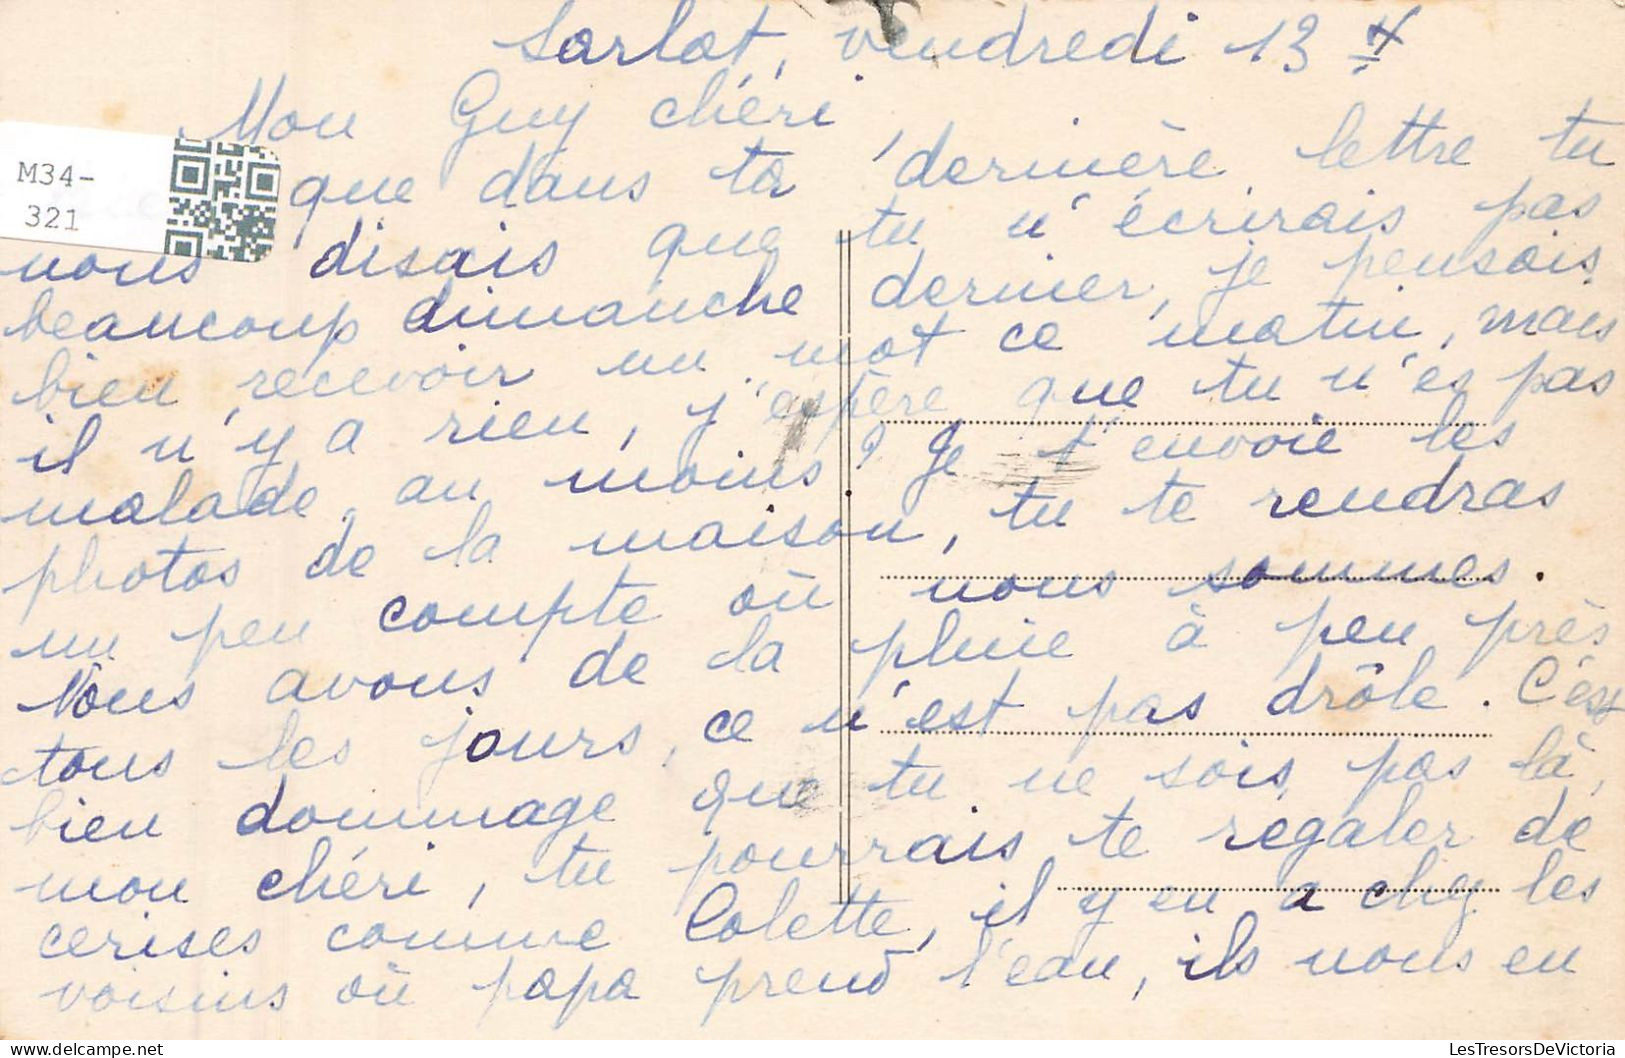 Sarlat, vendredi 13 H
Mon Guy chéri
que dans ta dernière lettre tu
nous disais que tu n'écrirais pas
beaucoup dimanche dernier, je pensais
bien recevoir un mot ce matin, mais
il n'y a rien, j'espère que tu n'es pas
malade au moins ? Je t'envoie les
photos de la maison, tu te rendras
un peu compte où nous sommes.
Nous avons de la pluie à peu près
tous les jours, ce n'est pas drôle. C'est
bien dommage que tu ne sois pas là,
mon chéri, tu pourrais te regaler de
cerises comme Colette, il y en a chez les
voisins où papa prend l'eau, ils nous en
M34-
321
LesTresorsDeVictoria.com